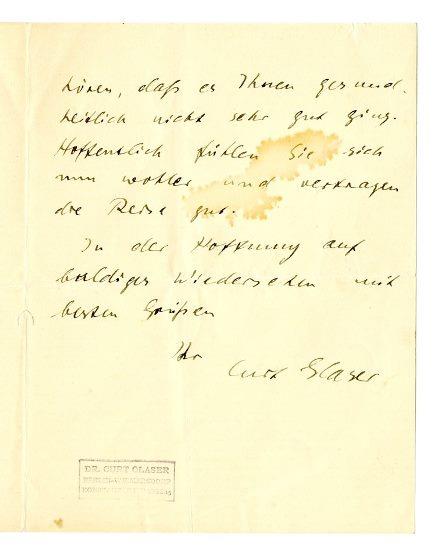 hören, daß es Ihnen gesund-
heitlich nicht sehr gut ging.
Hoffentlich fühlen Sie sich
nun wohler und vertragen
die Reise gut.
In der Hoffnung auf
baldiges Wiedersehen mit
besten Grüßen
Ihr
Curt Glaser
DR. CURT GLASER
BERLIN-WILMERSDORF